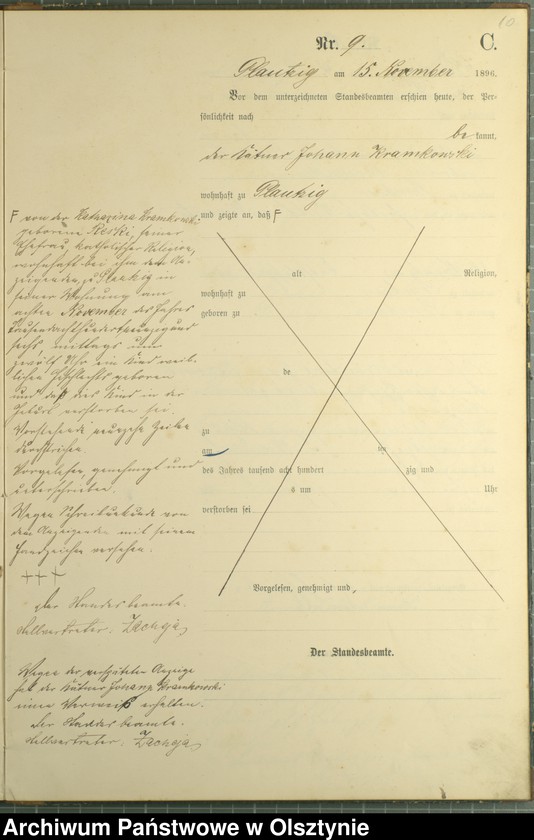 10
Nr. 9. C.
Plautzig am 15. November 1896.
Vor dem unterzeichneten Standesbeamten erschien heute, der Per-
sönlichkeit nach
be kannt,
der Kätner Johann Kramkowski
wohnhaft zu Plautzig
und zeigte an, daß F
F von der Katharina Kramkowski
geborene Reski, seiner
Ehefrau, katholischer Religion,
wohnhaft bei ihm dem An-
zeigenden, zu Plautzig in
seiner Wohnung am
achten November des Jahres
tausendachthundertneunzig und
sechs mittags um
zwölf Uhr ein Kind weib-
lichen Geschlechts geboren
und daß dies Kind in der
Geburt verstorben sei.
Vorstehende neunzehn Zeilen
durchstrichen.
Vorgelesen, genehmigt und
unterschrieben.
Wegen Schreibunkunde von
dem Anzeigenden mit seinem
Handzeichen versehen.
+++
Der Standesbeamte.
Stellvertreter. Zacheja
Wegen der verspäteten Anzeige
hat der Kätner Johann Kramkowski
einen Verweiß erhalten.
Der Standesbeamte.
Stellvertreter. Zacheja
alt Religion,
wohnhaft zu
geboren zu
de
zu
am
des Jahres tausend acht hundert zig und
s um Uhr
verstorben sei
Vorgelesen, genehmigt und
Der Standesbeamte.
Archiwum Państwowe w Olsztynie